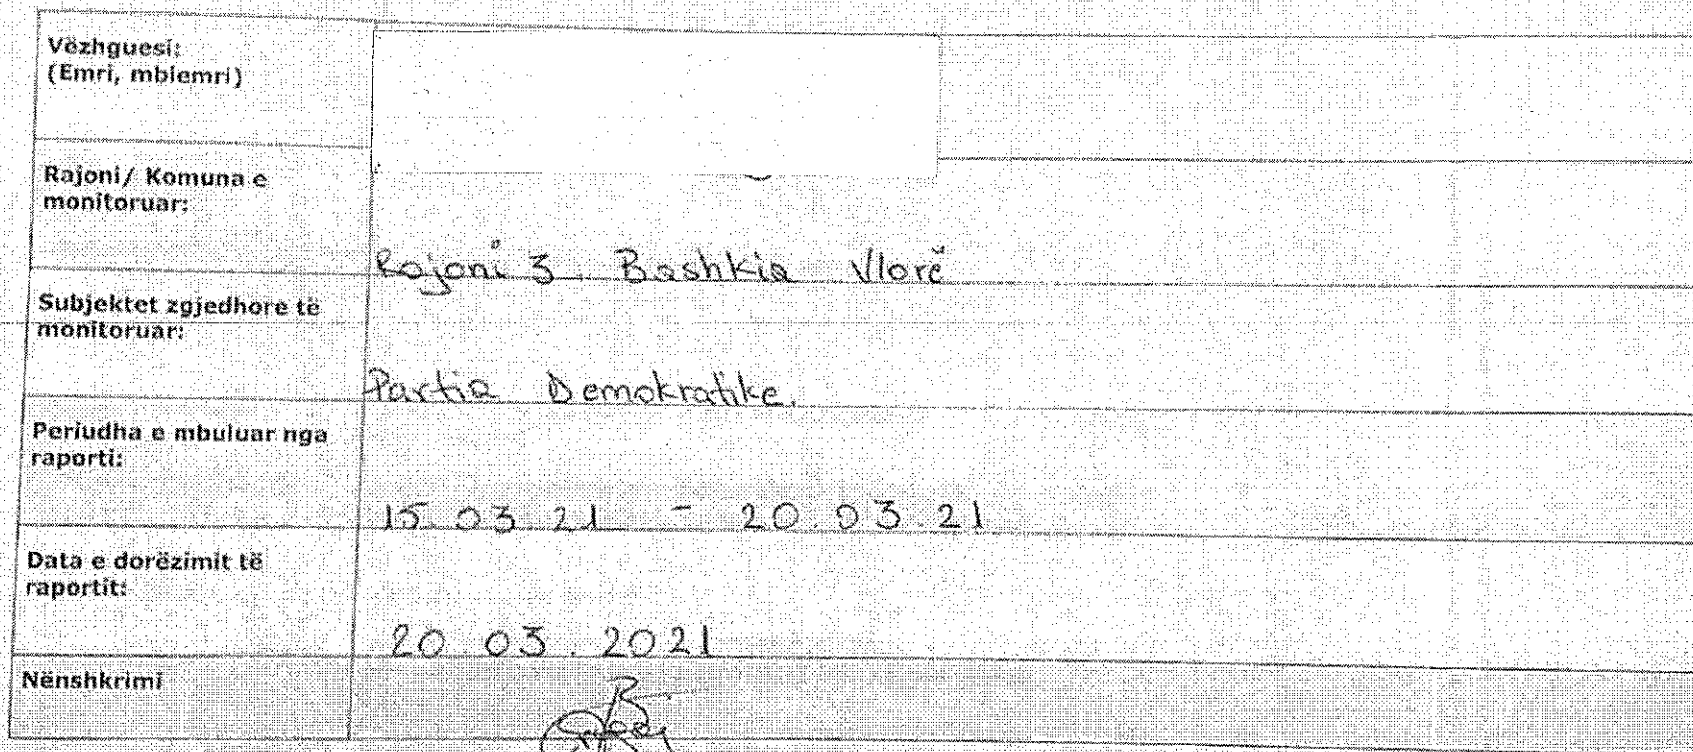 Vëzhguesi:
(Emri, mbiemri)
Rajoni/ Komuna e
monitoruar:
Rajoni 3. Bashkia Vlorë
Subjektet zgjedhore të
monitoruar:
Partia Demokratike.
Periudha e mbuluar nga
raporti:
15.03.21 - 20.03.21
Data e dorëzimit të
raportit:
20.03.2021
Nënshkrimi